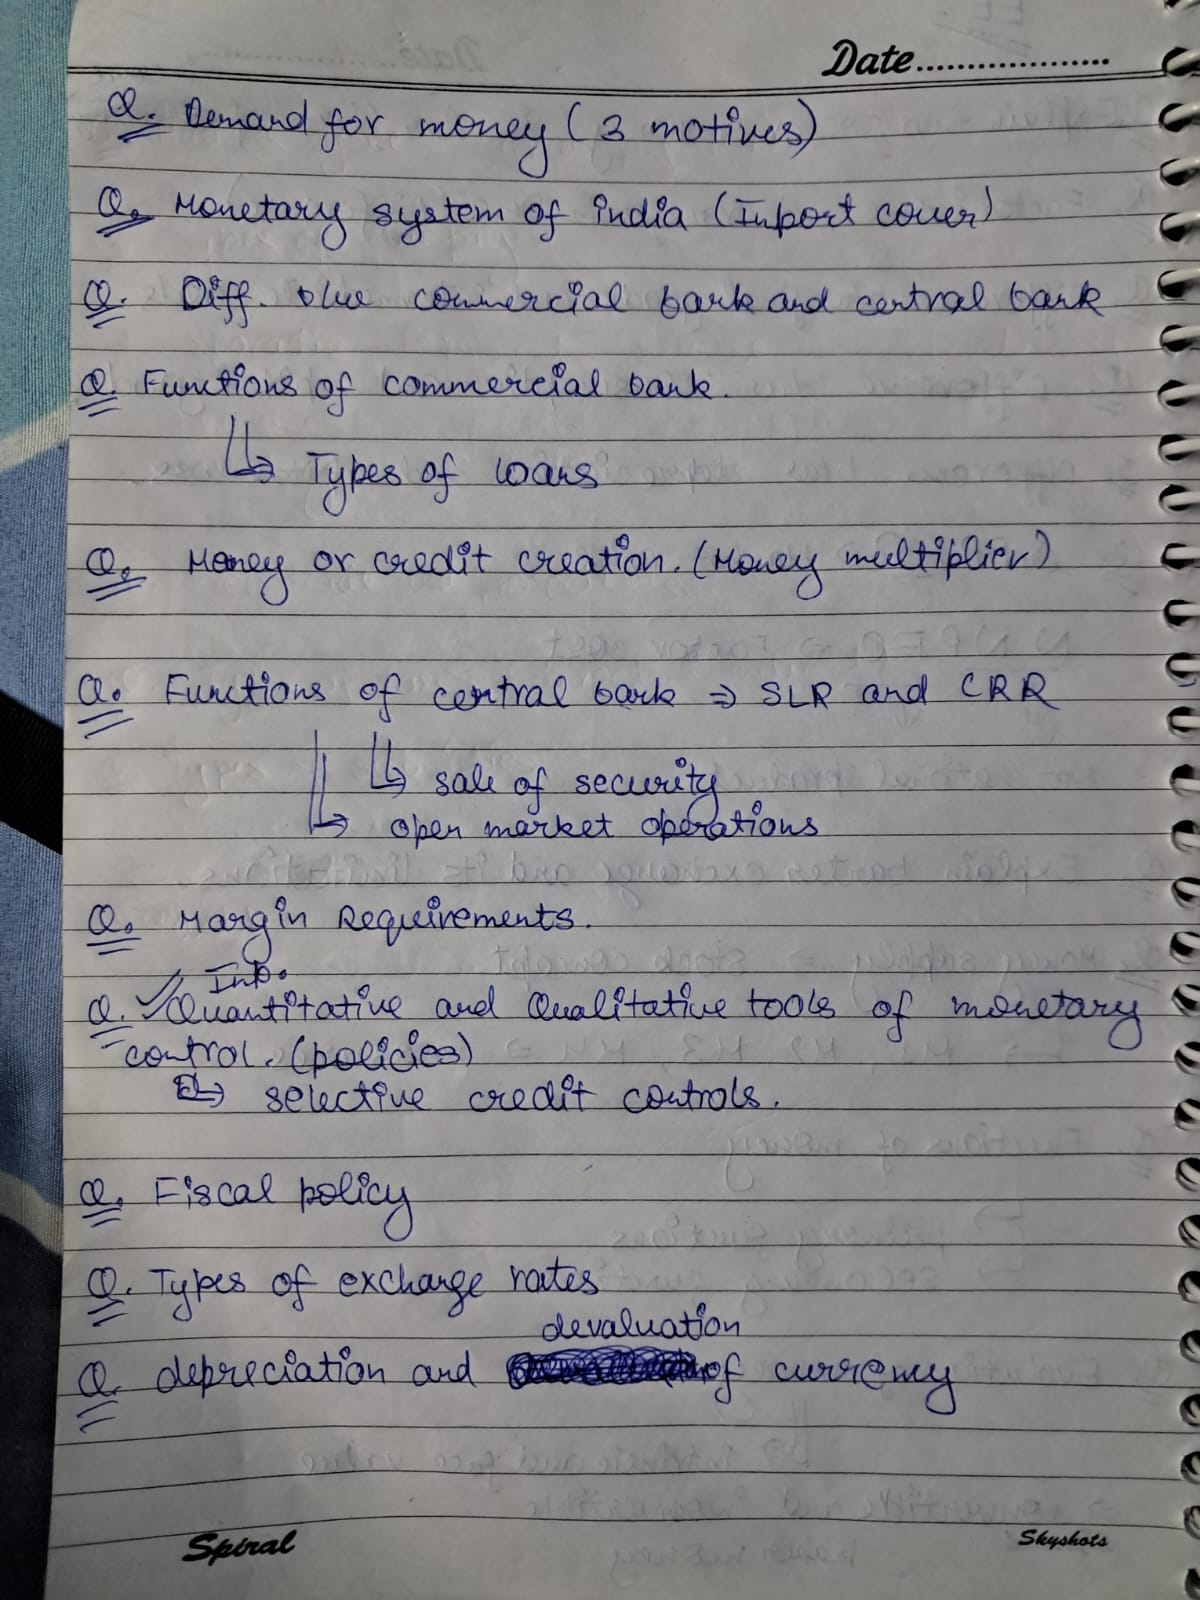 Date....................
Q. Demand for money (3 motives)
Q. Monetary system of India (Import cover)
Q. Diff. b/w commercial bank and central bank
Q. Functions of commercial bank.
↳ Types of loans
Q. Money or credit creation. (Money multiplier)
Q. Functions of central bank ⇒ SLR and CRR
↳ sale of security
↳ open market operations
Q. Margin Requirements.
Imp.
Q. ✓ Quantitative and Qualitative tools of monetary
control. (policies)
↳ selective credit controls.
Q. Fiscal policy
Q. Types of exchange rates
devaluation
Q. depreciation and of currency
Spiral
Skyshots